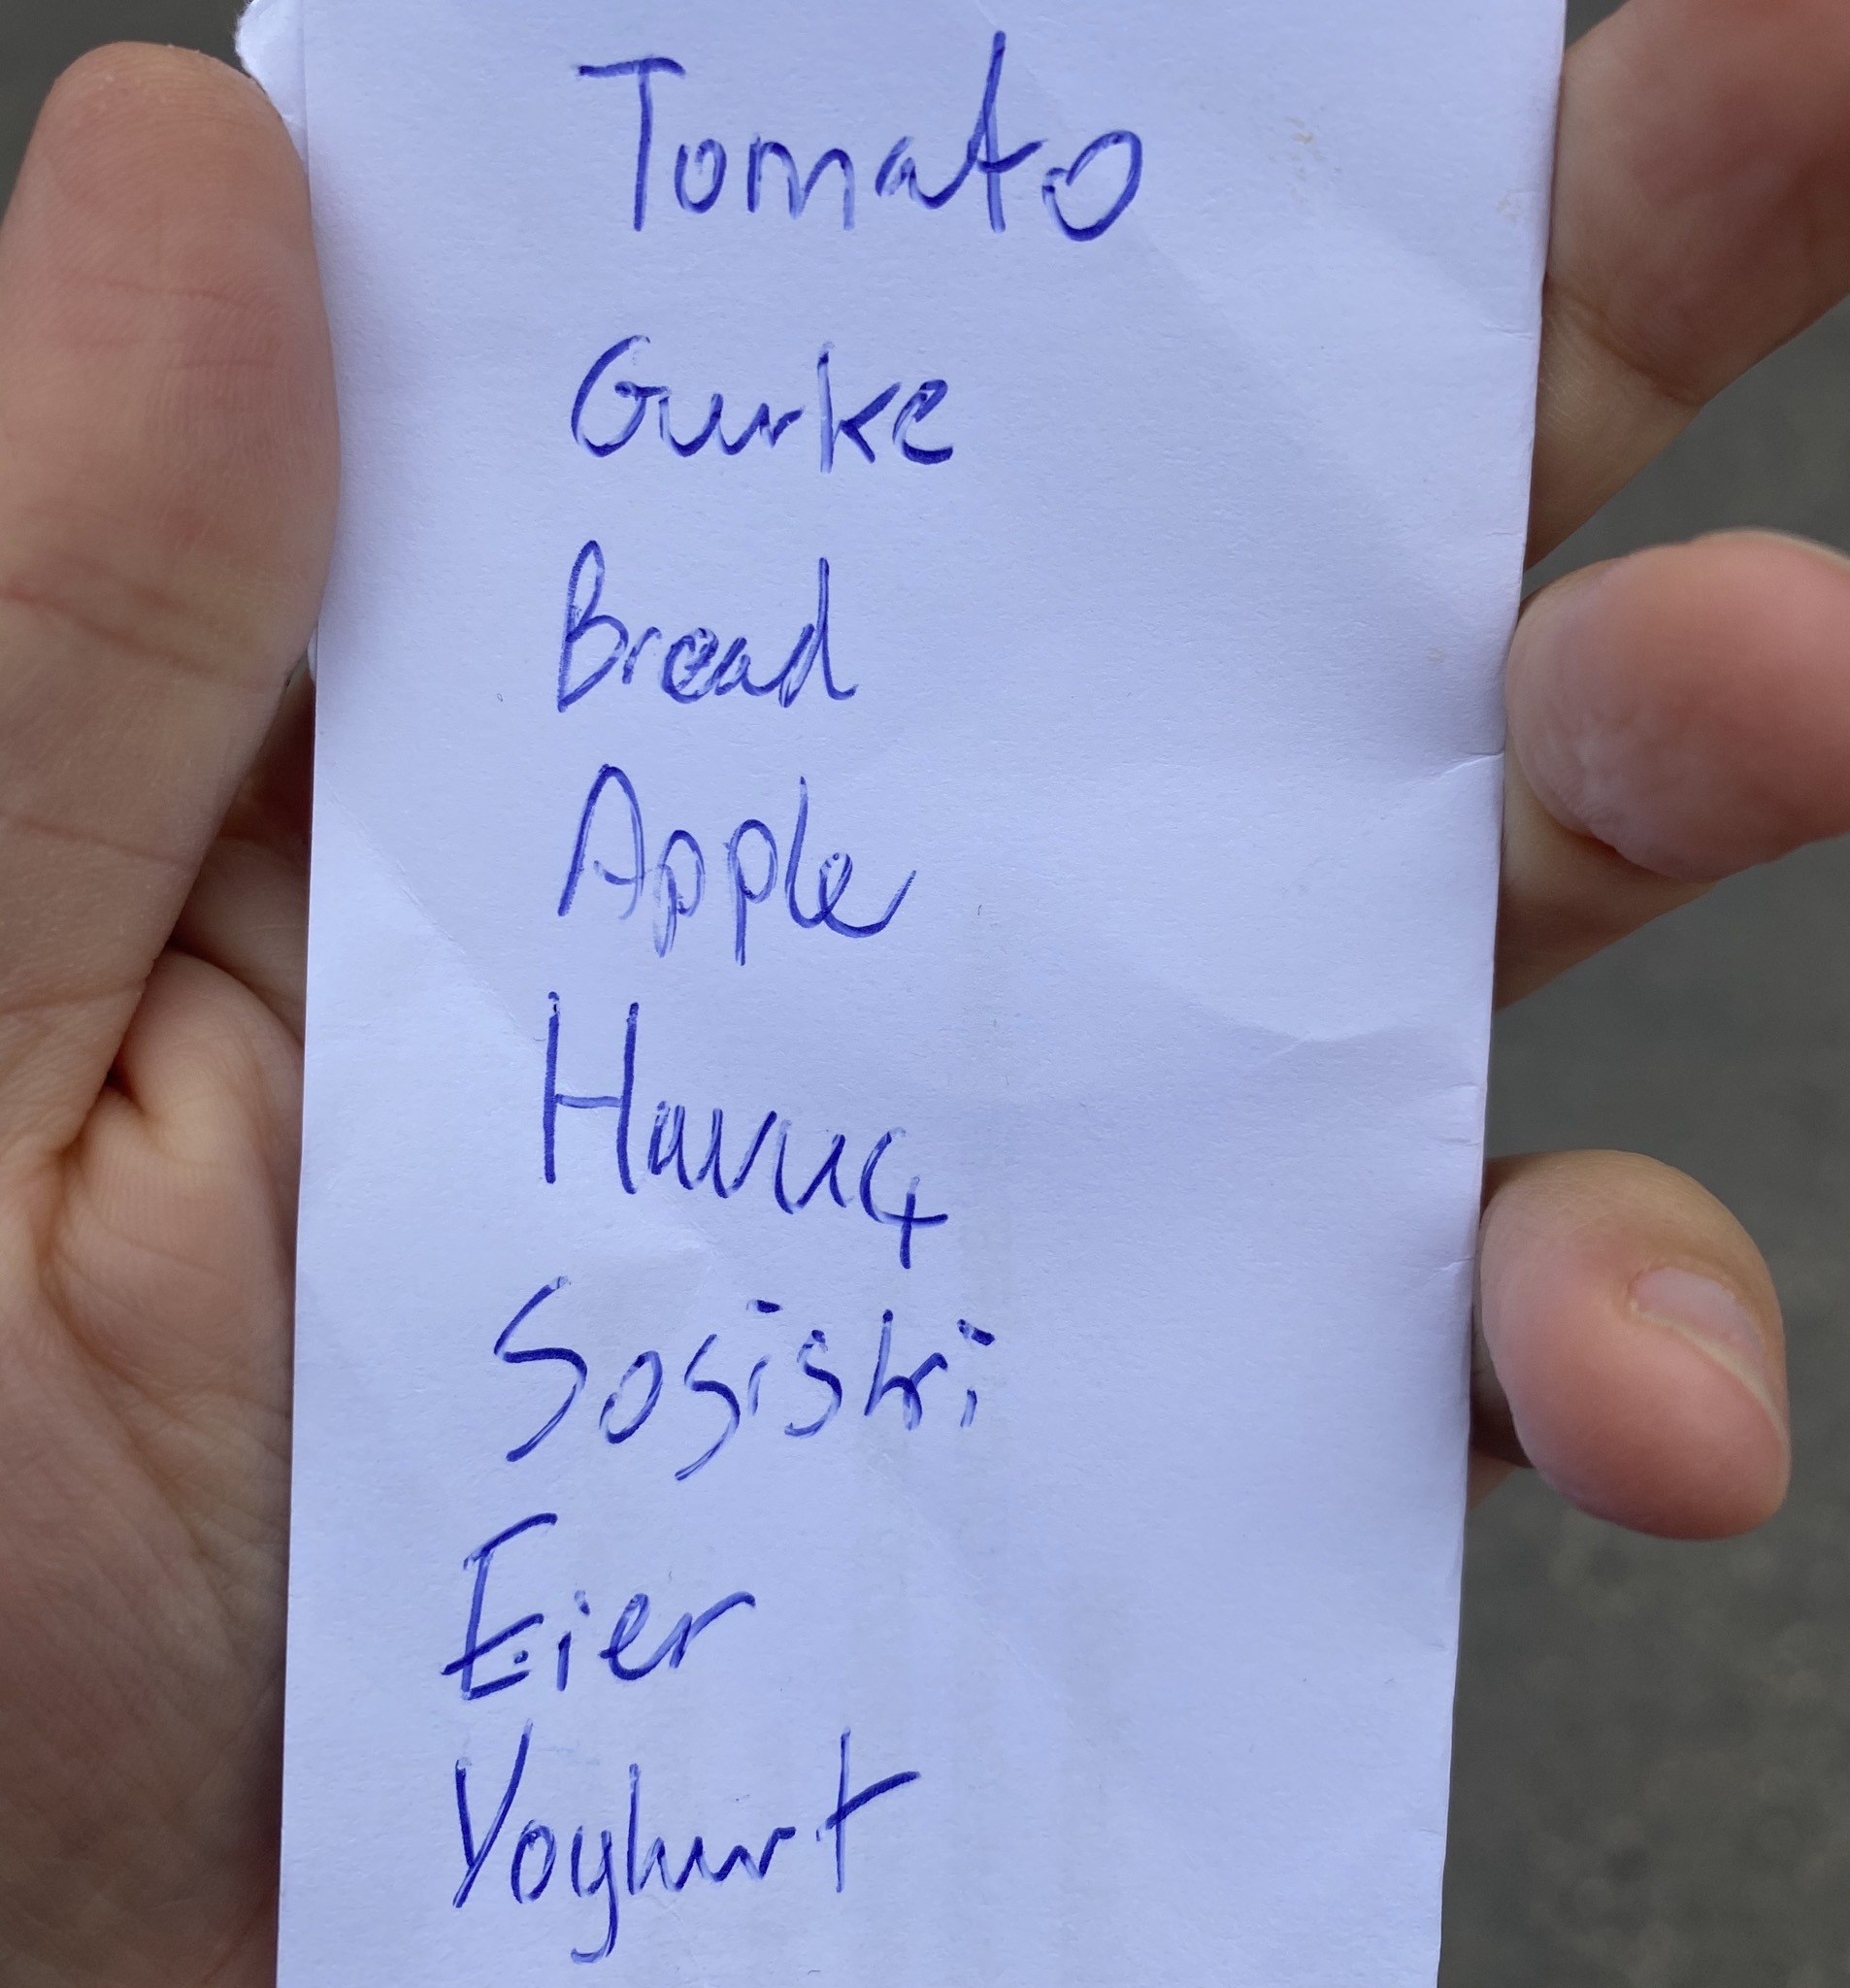 Tomato
Gurke
Bread
Apple
Havuç
Sosiski
Eier
Yoghurt